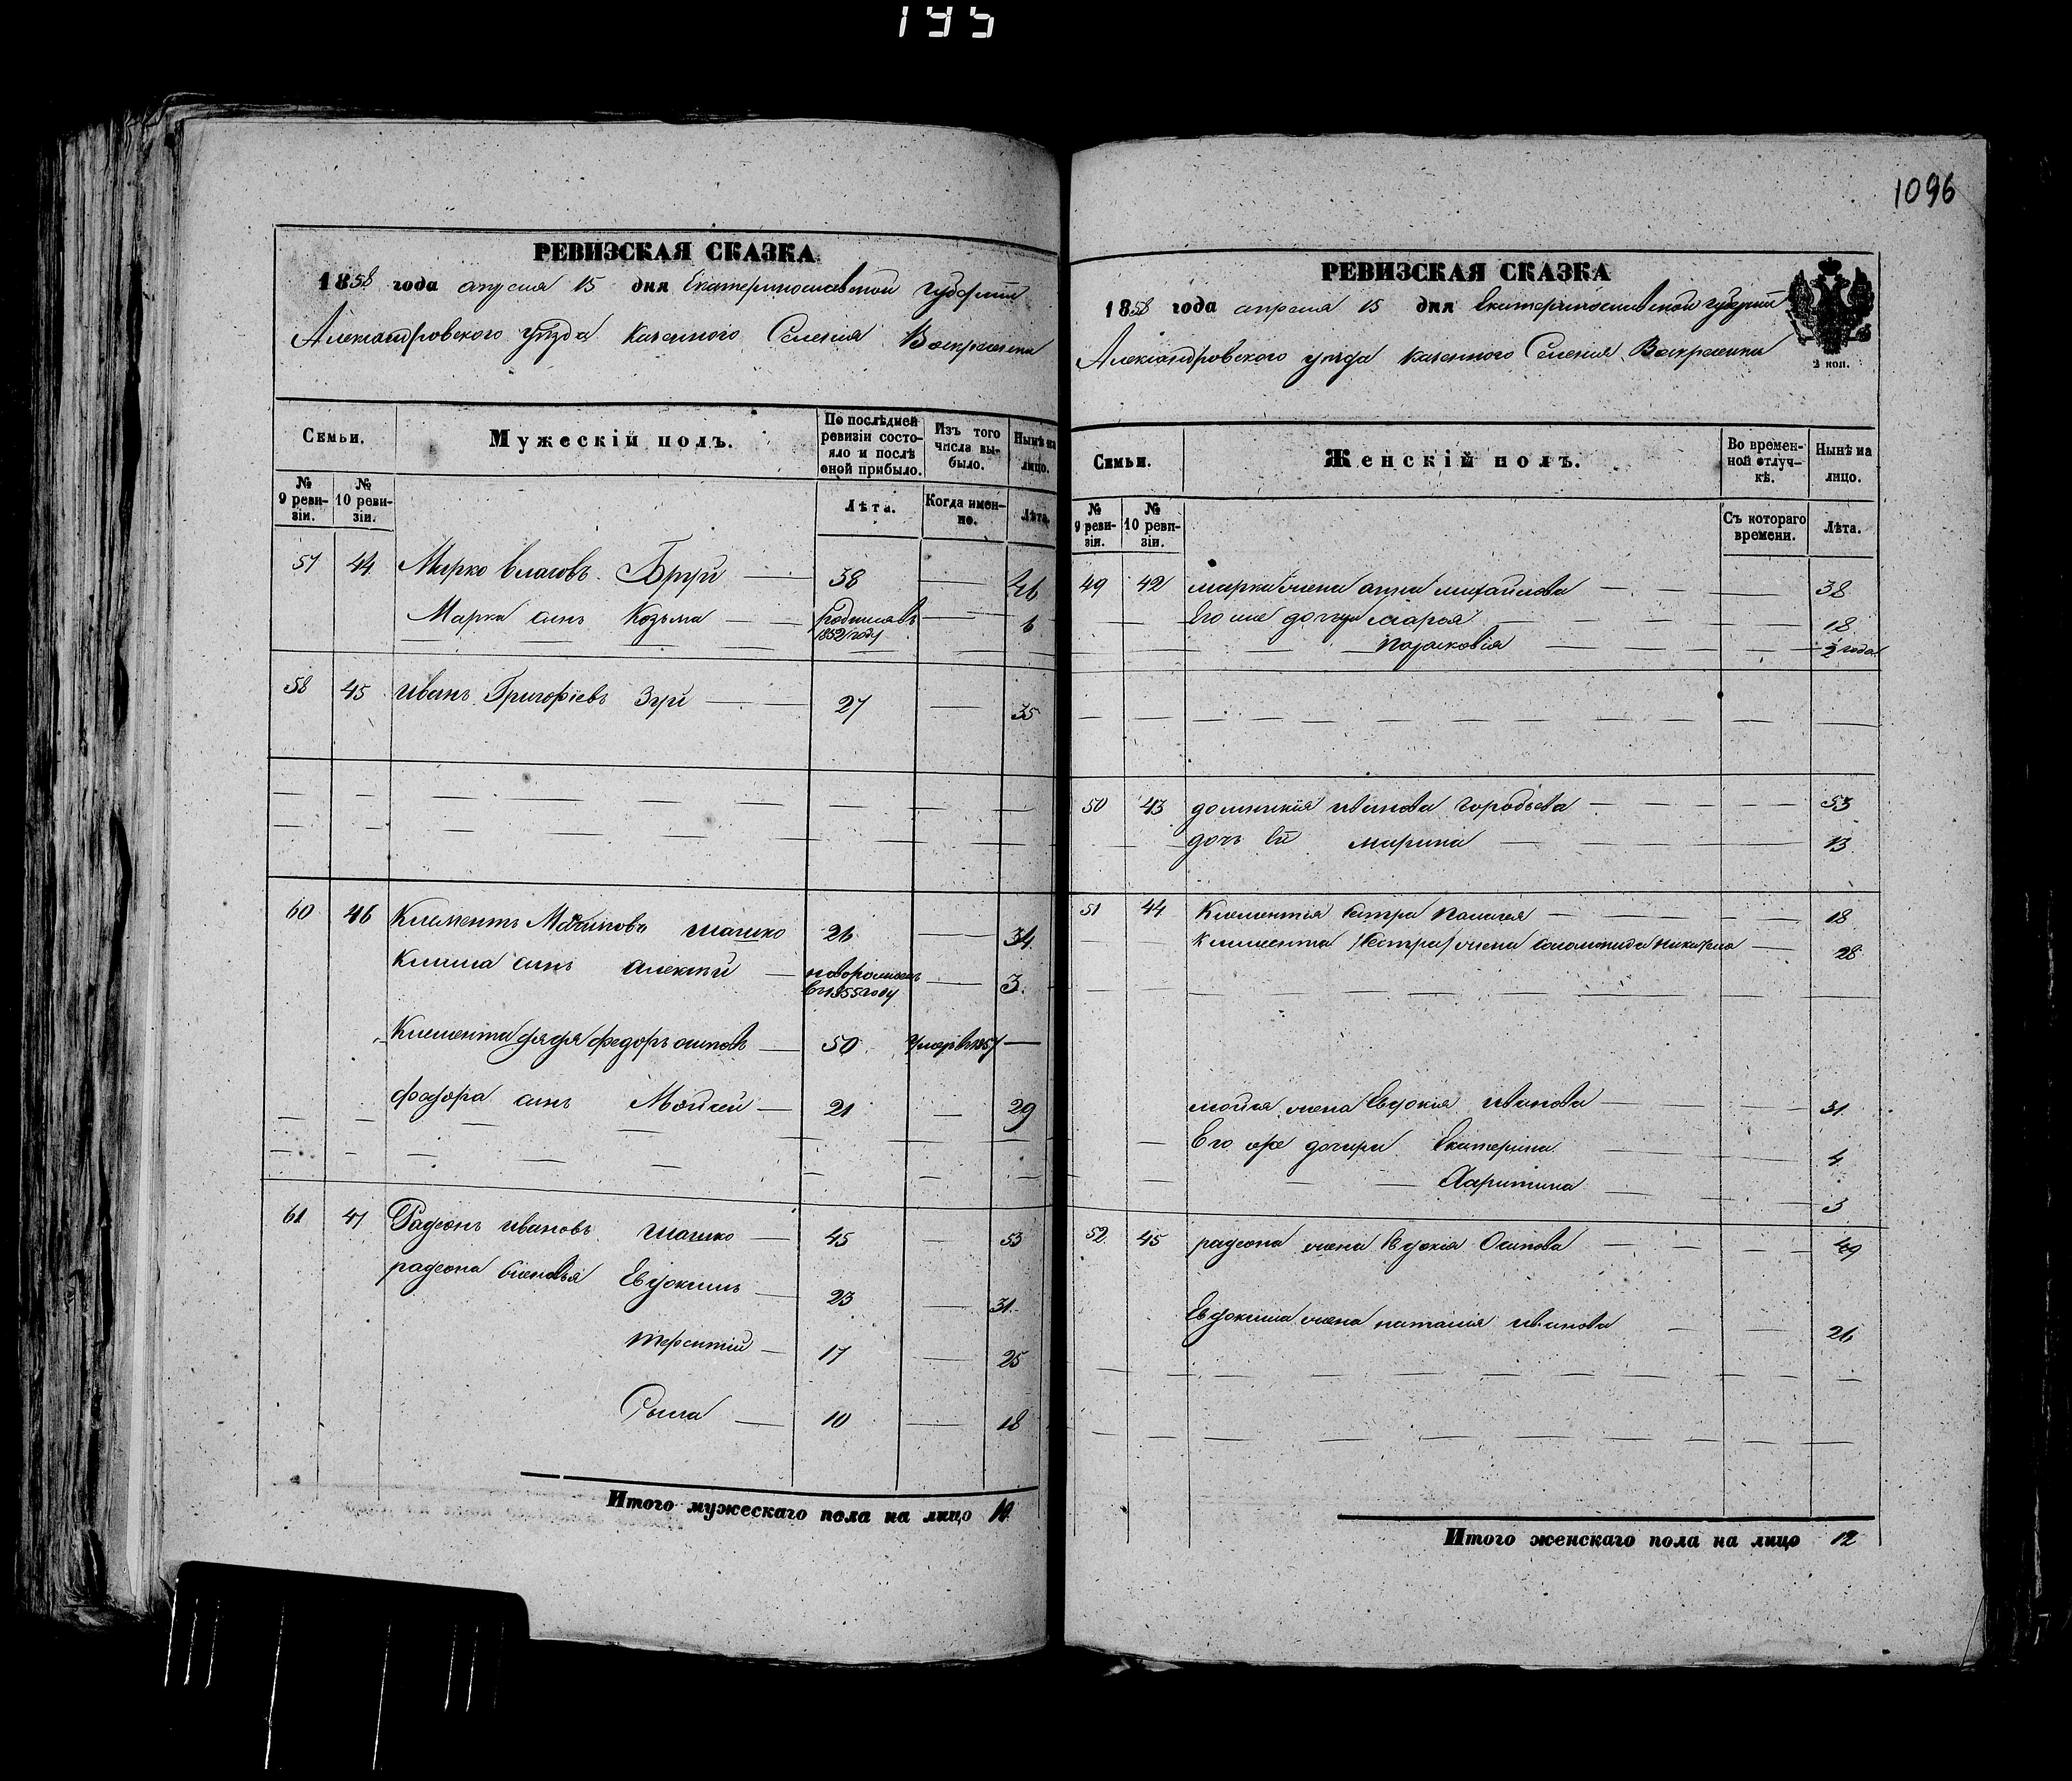 195
РЕВИЗСКАЯ СКАЗКА
1858 года апреля 15 дня Екатеринославской губернии
Александровского уезда казенного Селения Воскресенки
Семьи. Мужескій полъ. По послѣдней ревизіи состояло и послѣ оной прибыло. Изъ того числа выбыло. Нынѣ на лицо.
№ 9 ревизіи. № 10 ревизіи. Лѣта. Когда именно. Лѣта.
57 44 Марко Власовъ 38 46
Марка сынъ Козьма родился въ 1852 году 6
58 45 Иванъ Григоріевъ Зуй 27 35
60 46 Климентъ шашко 26 34
Клима сынъ Алексей 3
Климента дядя федоръ осиповъ 50 Умеръ 1857
федора сынъ Мойсей 21 29
61 47 Радеонъ Ивановъ шашко 45 53
радеона сыновья Евдокимъ 23 31
терентій 17 25
Фыма 10 18
Итого мужескаго пола на лицо 10
1096
РЕВИЗСКАЯ СКАЗКА
1858 года апреля 15 дня Екатеринославской губерніи
2 коп.
Александровского уезда казенного Селения Воскресенки
Семьи. Женскій полъ. Во временной отлучкѣ. Нынѣ на лицо.
№ 9 ревизіи. № 10 ревизіи. Съ котораго времени. Лѣта.
49 42 марка жена анна михайлова 38
Его же дочери марья 18
Парасковія ½ года
50 43 домникія иванова 53
дочь Ей марина 13
51 44 Климентія сестра Палагея 18
Климента жена 28
мойсея жена Евдокия Иванова 31
Его же дочери Екатерина 4
Харитина 3
52 45 радеона жена Евдокія Осипова 49
Евдокима жена наталия Иванова 26
Итого женскаго пола на лицо 12